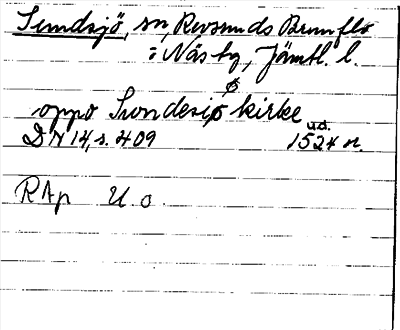 Sundsjö, sn, Revsunds Brunflo
: Näs tg, Jämtl. l.
oppo Sundesiø kirke
ø
DN 14, s. 409 u.d. 1524 n.
RAp U. o.